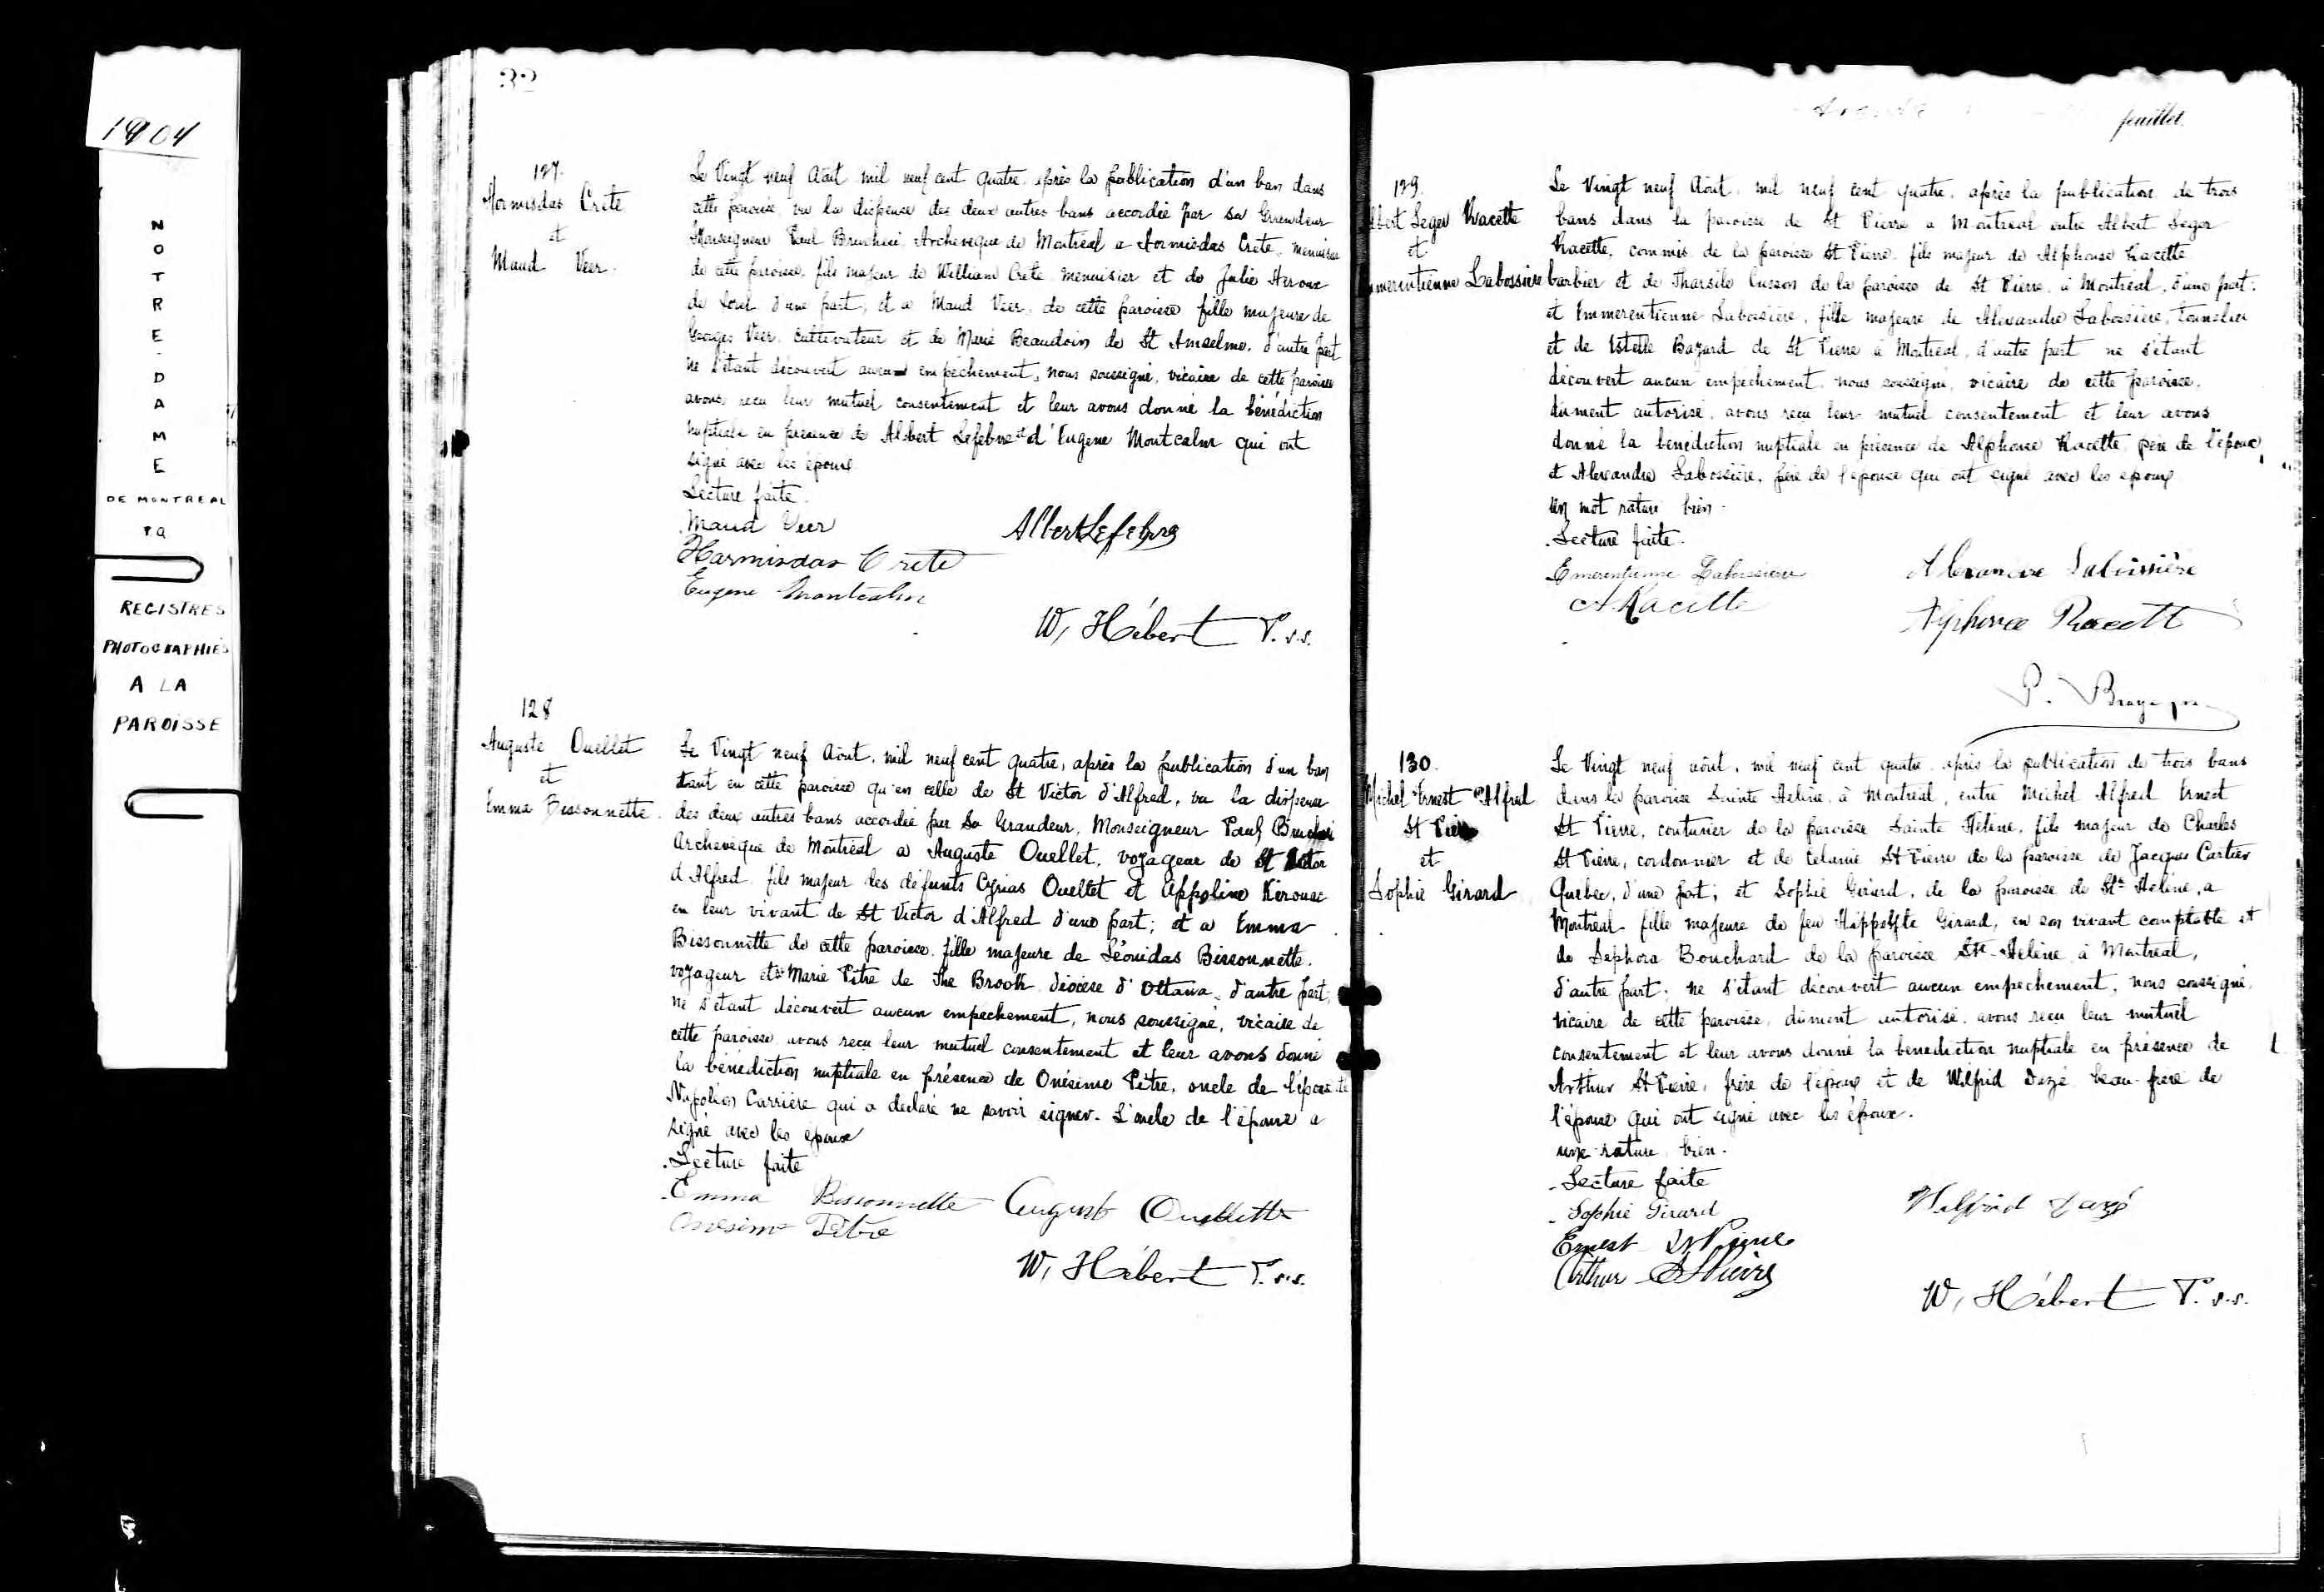 1904
NOTRE-DAME
DE MONTREAL
P.Q
REGISTRES
PHOTOGRAPHIÉS
A LA
PAROISSE
32
127.
Hormisdas Crete
et
Maud Veer.
Le Vingt neuf Août mil neuf cent quatre, après la publication d'un ban dans
cette paroisse, vu la dispense des deux autres bans accordée par sa Grandeur
Monseigneur Paul Bruchési Archevêque de Montréal a Hormisdas Crete, menuisier
de cette paroisse, fils majeur de William Crete menuisier et de Julie Heroux
de Sorel d'une part, et a Maud Veer, de cette paroisse fille majeure de
Georges Veer, cultivateur et de Marie Beaudoin de St Anselme, d'autre part
ne s'étant découvert aucun empêchement, nous soussigné, vicaire de cette paroisse
avons reçu leur mutuel consentement et leur avons donné la bénédiction
nuptiale en présence de Albert Lefebvre et d'Eugene Montcalm qui ont
signé avec les époux
Lecture faite.
Maud Veer
Albert Lefebvre
Harmisdas Crete
Eugene Montcalm
W. Hébert P.s.s.
128
Auguste Ouellet
et
Emma Bissonnette.
Le Vingt neuf Aout, mil neuf cent quatre, après la publication d'un ban
tant en cette paroisse qu'en celle de St Victor d'Alfred, vu la dispense
des deux autres bans accordée par Sa Grandeur, Monseigneur Paul Bruchési
Archevêque de Montréal a Auguste Ouellet, voyageur de St Victor
d'Alfred, fils majeur des défunts Cyrias Ouellet et Appoline Kerouac
en leur vivant de St Victor d'Alfred d'une part; et a Emma
Bissonnette de cette paroisse, fille majeure de Léonidas Bissonnette.
voyageur et de Marie Pitre de The Brook diocèse d'Ottawa, d'autre part,
ne s'étant découvert aucun empêchement, nous soussigné, vicaire de
cette paroisse avons reçu leur mutuel consentement et leur avons donné
la bénédiction nuptiale en présence de Onésime Pitre, oncle de l'épouse
Napoléon Carrière qui a déclaré ne savoir signer. L'oncle de l'épouse a
signé avec les époux
Lecture faite
Emma Bissonnette August Ouellette
Onesime Pitre
W. Hébert P.s.s.
feuillet.
129.
Albert Leger Racette
et
Emmerentienne Labossière
Le Vingt neuf Août, mil neuf cent quatre, après la publication de trois
bans dans la paroisse de St Pierre a Montréal entre Albert Leger
Racette, commis de la paroisse St Pierre, fils majeur de Alphonse Racette
barbier et de Tharsile Cusson de la paroisse de St Pierre, à Montréal, d'une part.
et Emmerentienne Labossière, fille majeure de Alexandre Labossière, Tonnelier
et de Estelle Bazard de St Pierre à Montréal, d'autre part ne s'étant
découvert aucun empêchement, nous soussigné, vicaire de cette paroisse.
dûment autorisé, avons reçu leur mutuel consentement et leur avons
donné la bénédiction nuptiale en présence de Alphonse Racette, père de l'époux
et Alexandre Labossière, père de l'épouse qui ont signé avec les époux
un mot raturé bien.
Lecture faite.
Emerentienne Labossière Alexandre Labissière
A. Racette Alphonse Racette
P.
130.
Michel Ernest Alfred
St Pierre
et
Sophie Girard
Le Vingt neuf août, mil neuf cent quatre après la publication de trois bans
dans la paroisse Sainte Hélène, à Montréal, entre Michel Alfred Ernest
St Pierre, couturier de la paroisse Sainte Hélène, fils majeur de Charles
St Pierre, cordonnier et de Célanie St Pierre de la paroisse de Jacques Cartier
Quebec, d'une part; et Sophie Girard, de la paroisse de Ste Hélène, a
Montréal, fille majeure de feu Hippolyte Girard, en son vivant comptable et
de Sephora Bouchard de la paroisse Ste-Hélène à Montréal,
d'autre part, ne s'étant découvert aucun empêchement, nous soussigné,
vicaire de cette paroisse, dûment autorisé, avons reçu leur mutuel
consentement et leur avons donné la bénédiction nuptiale en présence de
Arthur St Pierre, frère de l'époux et de Wilfrid Dazé beau-frère de
l'épouse qui ont signé avec les époux.
une rature bien.
Lecture faite
Sophie Girard Wilfrid Dazé
Ernest St Pierre
Arthur St Pierre
W. Hébert P.s.s.